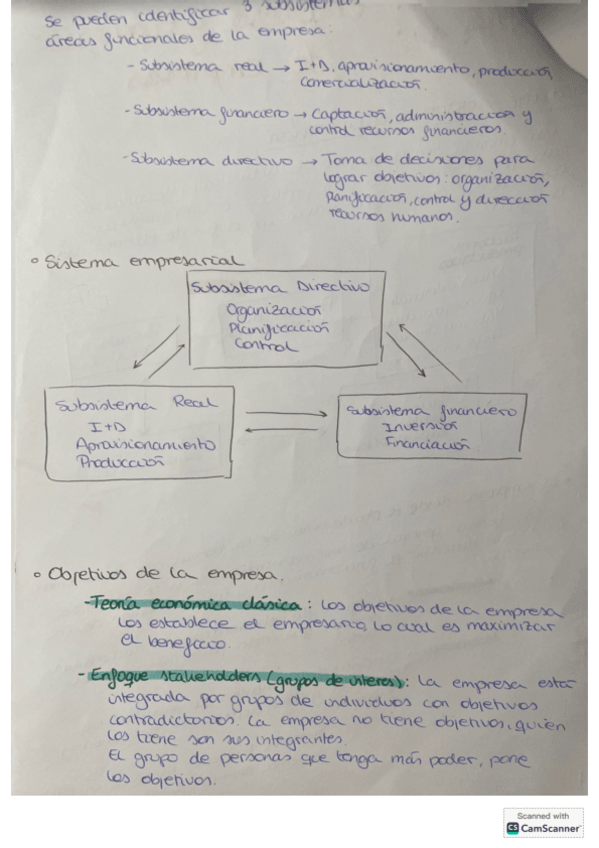 Se pueden identificar 3 subsistemas
áreas funcionales de la empresa:
- Subsistema real → I+D, aprovisionamiento, producción,
comercialización.
- Subsistema financiero → Captación, administración y
control recursos financieros.
- Subsistema directivo → Toma de decisiones para
lograr objetivos: organización,
planificación, control y dirección
recursos humanos.
° Sistema empresarial
Subsistema Directivo
Organización
Planificación
Control
Subsistema Real
I+D
Aprovisionamiento
Producción
Subsistema financiero
Inversión
Financiación
° Objetivos de la empresa.
- Teoría económica clásica: Los objetivos de la empresa
los establece el empresario, lo cual es maximizar
el beneficio.
- Enfoque stakeholders (grupos de interes): La empresa está
integrada por grupos de individuos con objetivos
contradictorios. La empresa no tiene objetivos, quien
los tiene son sus integrantes.
El grupo de personas que tenga más poder, pone
los objetivos.
Scanned with
CS CamScanner